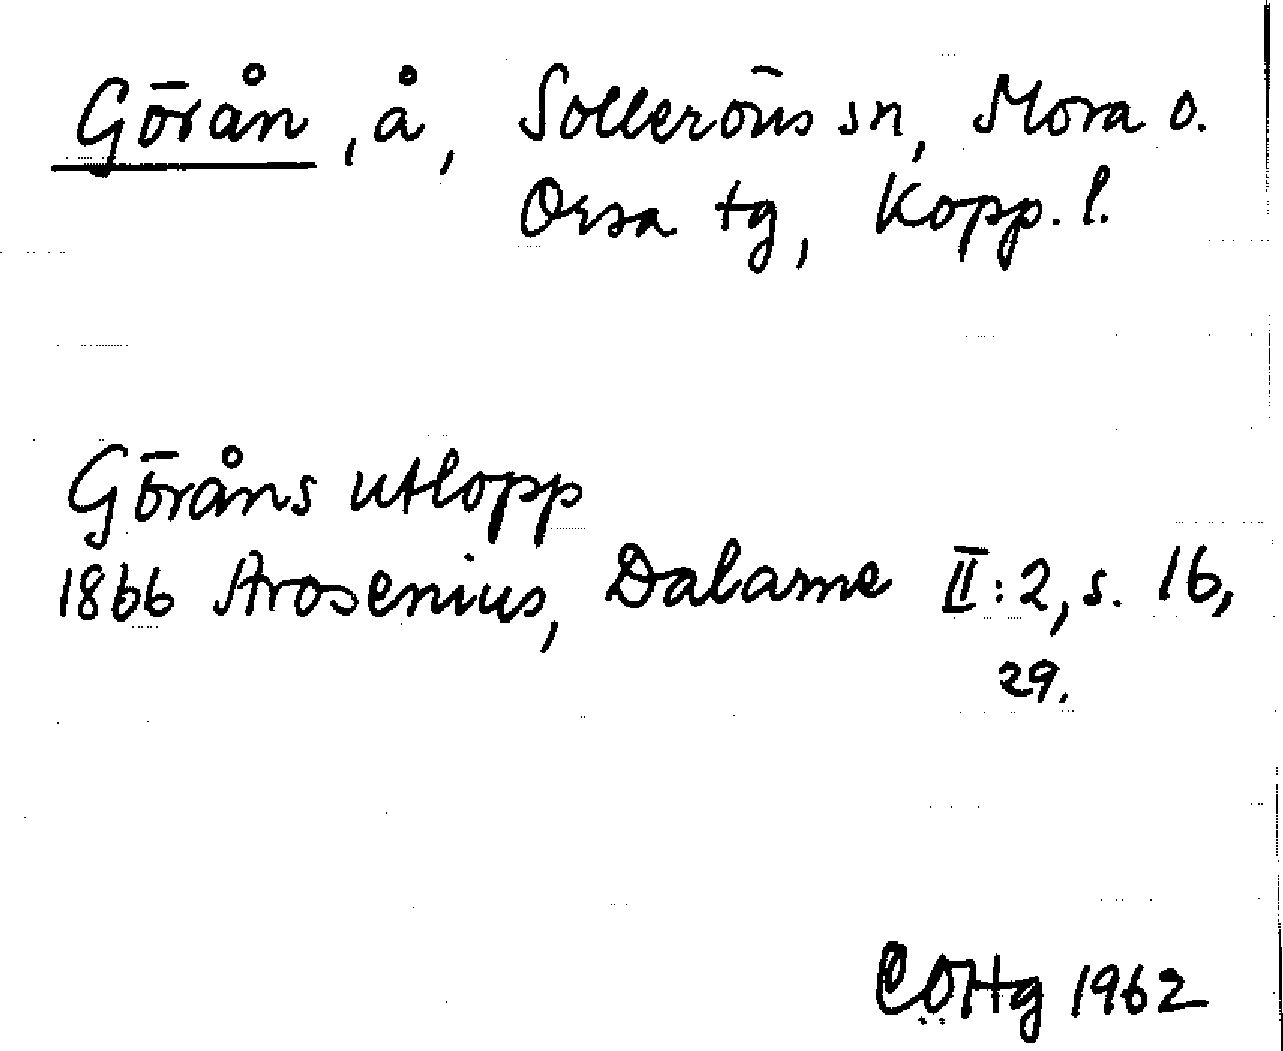 Görån, å, Solleröns sn, Mora o.
Orsa tg, Kopp. l.
Göråns utlopp
1866 Arosenius, Dalarne II:2, s. 16,
29.
COHg 1962